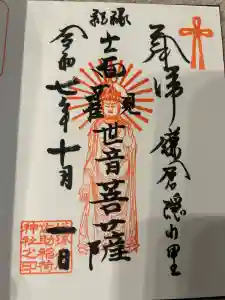 奉拝 鎌倉隠れ里
縁結
十一面観世音菩薩
令和七年十月一日
佐助稲荷
神社之印